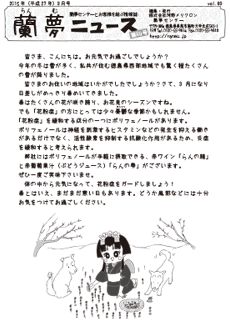 2015年（平成27年）3月号
vol.89
らん
む
蘭夢ニュース
皆さま、こんにちは。お元気でお過ごしでしょうか？
今年の冬は雪が多く、私共が住む徳島県西部地域でも驚く程たくさん
の雪が降りました。
皆さまのお住いの地域はいかがでしたでしょうか？さて、3月になり
日差しがめっきり春めいてきました。
春はたくさんの花が咲き誇り、お花見のシーズンですね。
でも「花粉症」の方にとっては少々憂鬱な季節かもしれません。
「花粉症」を緩和する成分の一つにポリフェノールがあります。
ポリフェノールは神経を刺激するヒスタミンなどの発生を抑える働きが
あるだけでなく、活性酸素を抑制する抗酸化作用があるため、炎症
を緩和すると考えられます。
弊社にはポリフェノールが手軽に摂取できる、赤ワイン「らんの精」
と非醗酵果汁（ぶどうジュース）「らんの雫」がございます。
ぜひ一度ご笑味下さいませ。
体の中から元気になって、花粉症をガードしましょう！
春とはいえ、まだまだ寒い日もあります。どうか風邪などには十分
お気をつけてお過ごしください。